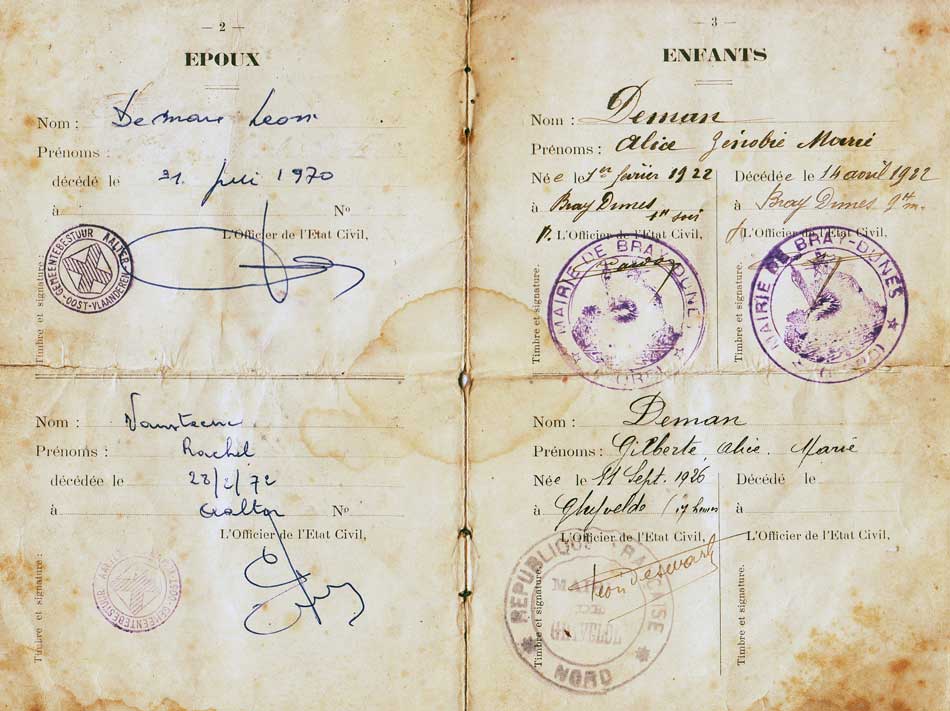 — 2 —
EPOUX
Nom : Deman Leon
Prénoms :
décédé le 31 juli 1970
à Nº
L'Officier de l'Etat Civil,
Timbre et signature:
GEMEENTEBESTUUR AALTER
OOST-VLAANDEREN
Nom :
Prénoms : Rachel
décédée le 28/2/72
à Aalter Nº
L'Officier de l'Etat Civil,
Timbre et signature:
GEMEENTEBESTUUR AALTER
— 3 —
ENFANTS
Nom : Deman
Prénoms : Alice Zénobie Marie
Née le 1er février 1922 Décédée le 14 avril 1922
à Bray Dunes à Bray Dunes
L'Officier de l'Etat Civil, L'Officier de l'Etat Civil,
Timbre et signature: Timbre et signature:
MAIRIE DE BRAY-DUNES MAIRIE DE BRAY-DUNES
Nom : Deman
Prénoms : Gilberte Alice Marie
Née le 11 Sept. 1926 Décédé le
à Ghyvelde (17 heures à
L'Officier de l'Etat Civil, L'Officier de l'Etat Civil,
Timbre et signature. Timbre et signature.
REPUBLIQUE FRANÇAISE
NORD